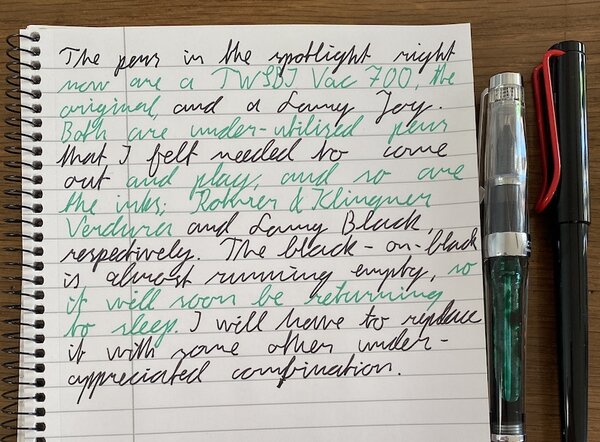 The pens in the spotlight right
now are a TWSBI Vac 700, the
original, and a Lamy Joy.
Both are under-utilised pens
that I felt needed to come
out and play, and so are
the inks; Rohrer & Klingner
Verdura and Lamy Black,
respectively. The black-on-black
is almost running empty, so
it will soon be returning
to sleep. I will have to replace
it with some other under-
appreciated combination.